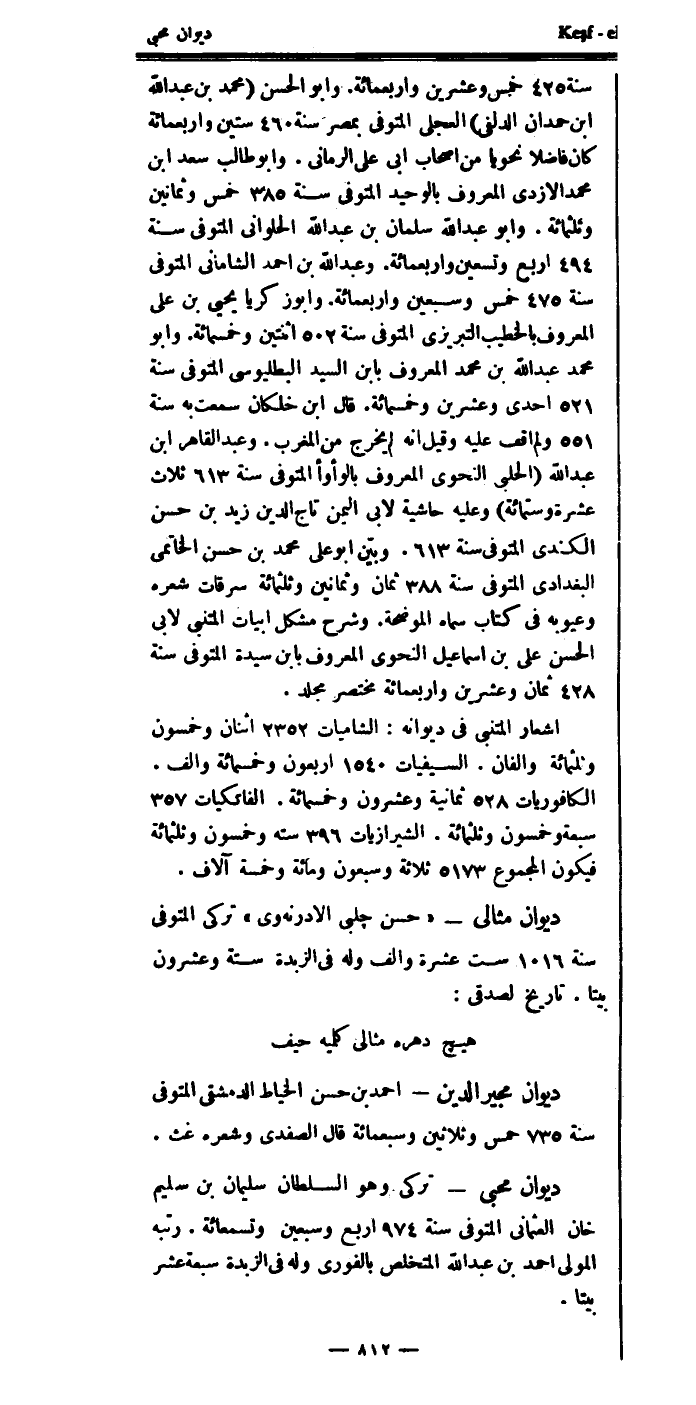 ديوان محبى
Keşf - el
سنة ٤٢٥ خمس وعشرين واربعمائة. وابو الحسن (محمد بن عبدالله
ابن حمدان الدلفى) العجلى المتوفى بمصر سنة ٤٦٠ ستين واربعمائة
كان فاضلا نحويا من اصحاب ابى على الرمانى . وابوطالب سعد ابن
محمد الازدى المعروف بالوحيد المتوفى سنة ٣٨٥ خمس وثمانين
وثلثمائة . وابو عبدالله سلمان بن عبدالله الحلوانى المتوفى سنة
٤٩٤ اربع وتسعين واربعمائة. وعبدالله بن احمد الشامانى المتوفى
سنة ٤٧٥ خمس وسبعين واربعمائة. وابوز كريا يحيى بن على
المعروف بالخطيب التبريزى المتوفى سنة ٥٠٢ اثنتين وخمسمائة. وابو
محمد عبدالله بن محمد المعروف بابن السيد البطليوسى المتوفى سنة
٥٢١ احدى وعشرين وخمسمائة. قال ابن خلكان سمعت به سنة
٥٥١ ولم اقف عليه وقيل انه لم يخرج من المغرب . وعبدالقاهر ابن
عبدالله (الحلبى النحوى المعروف بالوأوأ المتوفى سنة ٦١٣ ثلاث
عشرة وستمائة) وعليه حاشية لابى اليمن تاج الدين زيد بن حسن
الكندى المتوفى سنة ٦١٣ . وبيّن ابوعلى محمد بن حسن الحاتمى
البغدادى المتوفى سنة ٣٨٨ ثمان وثمانين وثلثمائة سرقات شعره
وعيوبه فى كتاب سماه الموضحة. وشرح مشكل ابيات المتنبى لابى
الحسن على بن اسماعيل النحوى المعروف بابن سيدة المتوفى سنة
٤٢٨ ثمان وعشرين واربعمائة مختصر مجلد .
اشعار المتنبى فى ديوانه : الشاميات ٢٣٥٢ اثنان وخمسون
وثلثمائة والفان . السيفيات ١٥٤٠ اربعون وخمسمائة والف .
الكافوريات ٥٢٨ ثمانية وعشرون وخمسمائة . الفاتكيات ٣٥٧
سبعة وخمسون وثلثمائة . الشيرازيات ٣٩٦ سته وخمسون وثلثمائة
فيكون المجموع ٥١٧٣ ثلاثة وسبعون ومائة وخمسة آلاف .
ديوان مثالى — « حسن چلبى الادرنه‌وى » تركى المتوفى
سنة ١٠١٦ ست عشرة والف وله فى الزبدة ستة وعشرون
بيتا . تاريخ لصدقى :
هيچ دهره مثالى كلميه حيف
ديوان مجير الدين — احمد بن حسن الخياط الدمشقى المتوفى
سنة ٧٣٥ خمس وثلاثين وسبعمائة قال الصفدى وشعره غث .
ديوان محبى — تركى وهو السلطان سليمان بن سليم
خان العثمانى المتوفى سنة ٩٧٤ اربع وسبعين وتسعمائة . رتبه
المولى احمد بن عبدالله المتخلص بالفورى وله فى الزبدة سبعة عشر
بيتا .
— ٨١٢ —